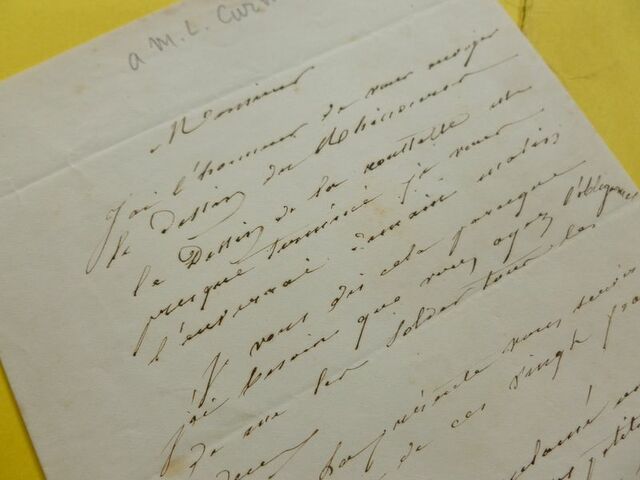 a M. L. Cur
Monsieur
J'ai l'honneur de vous envoyer
le Dessin du Rhinocéros
le Dessin de la roussette est
presque terminé je vous
l'enverrai demain matin
Je vous dis cela parceque
j'ai besoin que vous ayez l'obligeance
de me les solder tous les
deux
la présente vous
de ces vingt